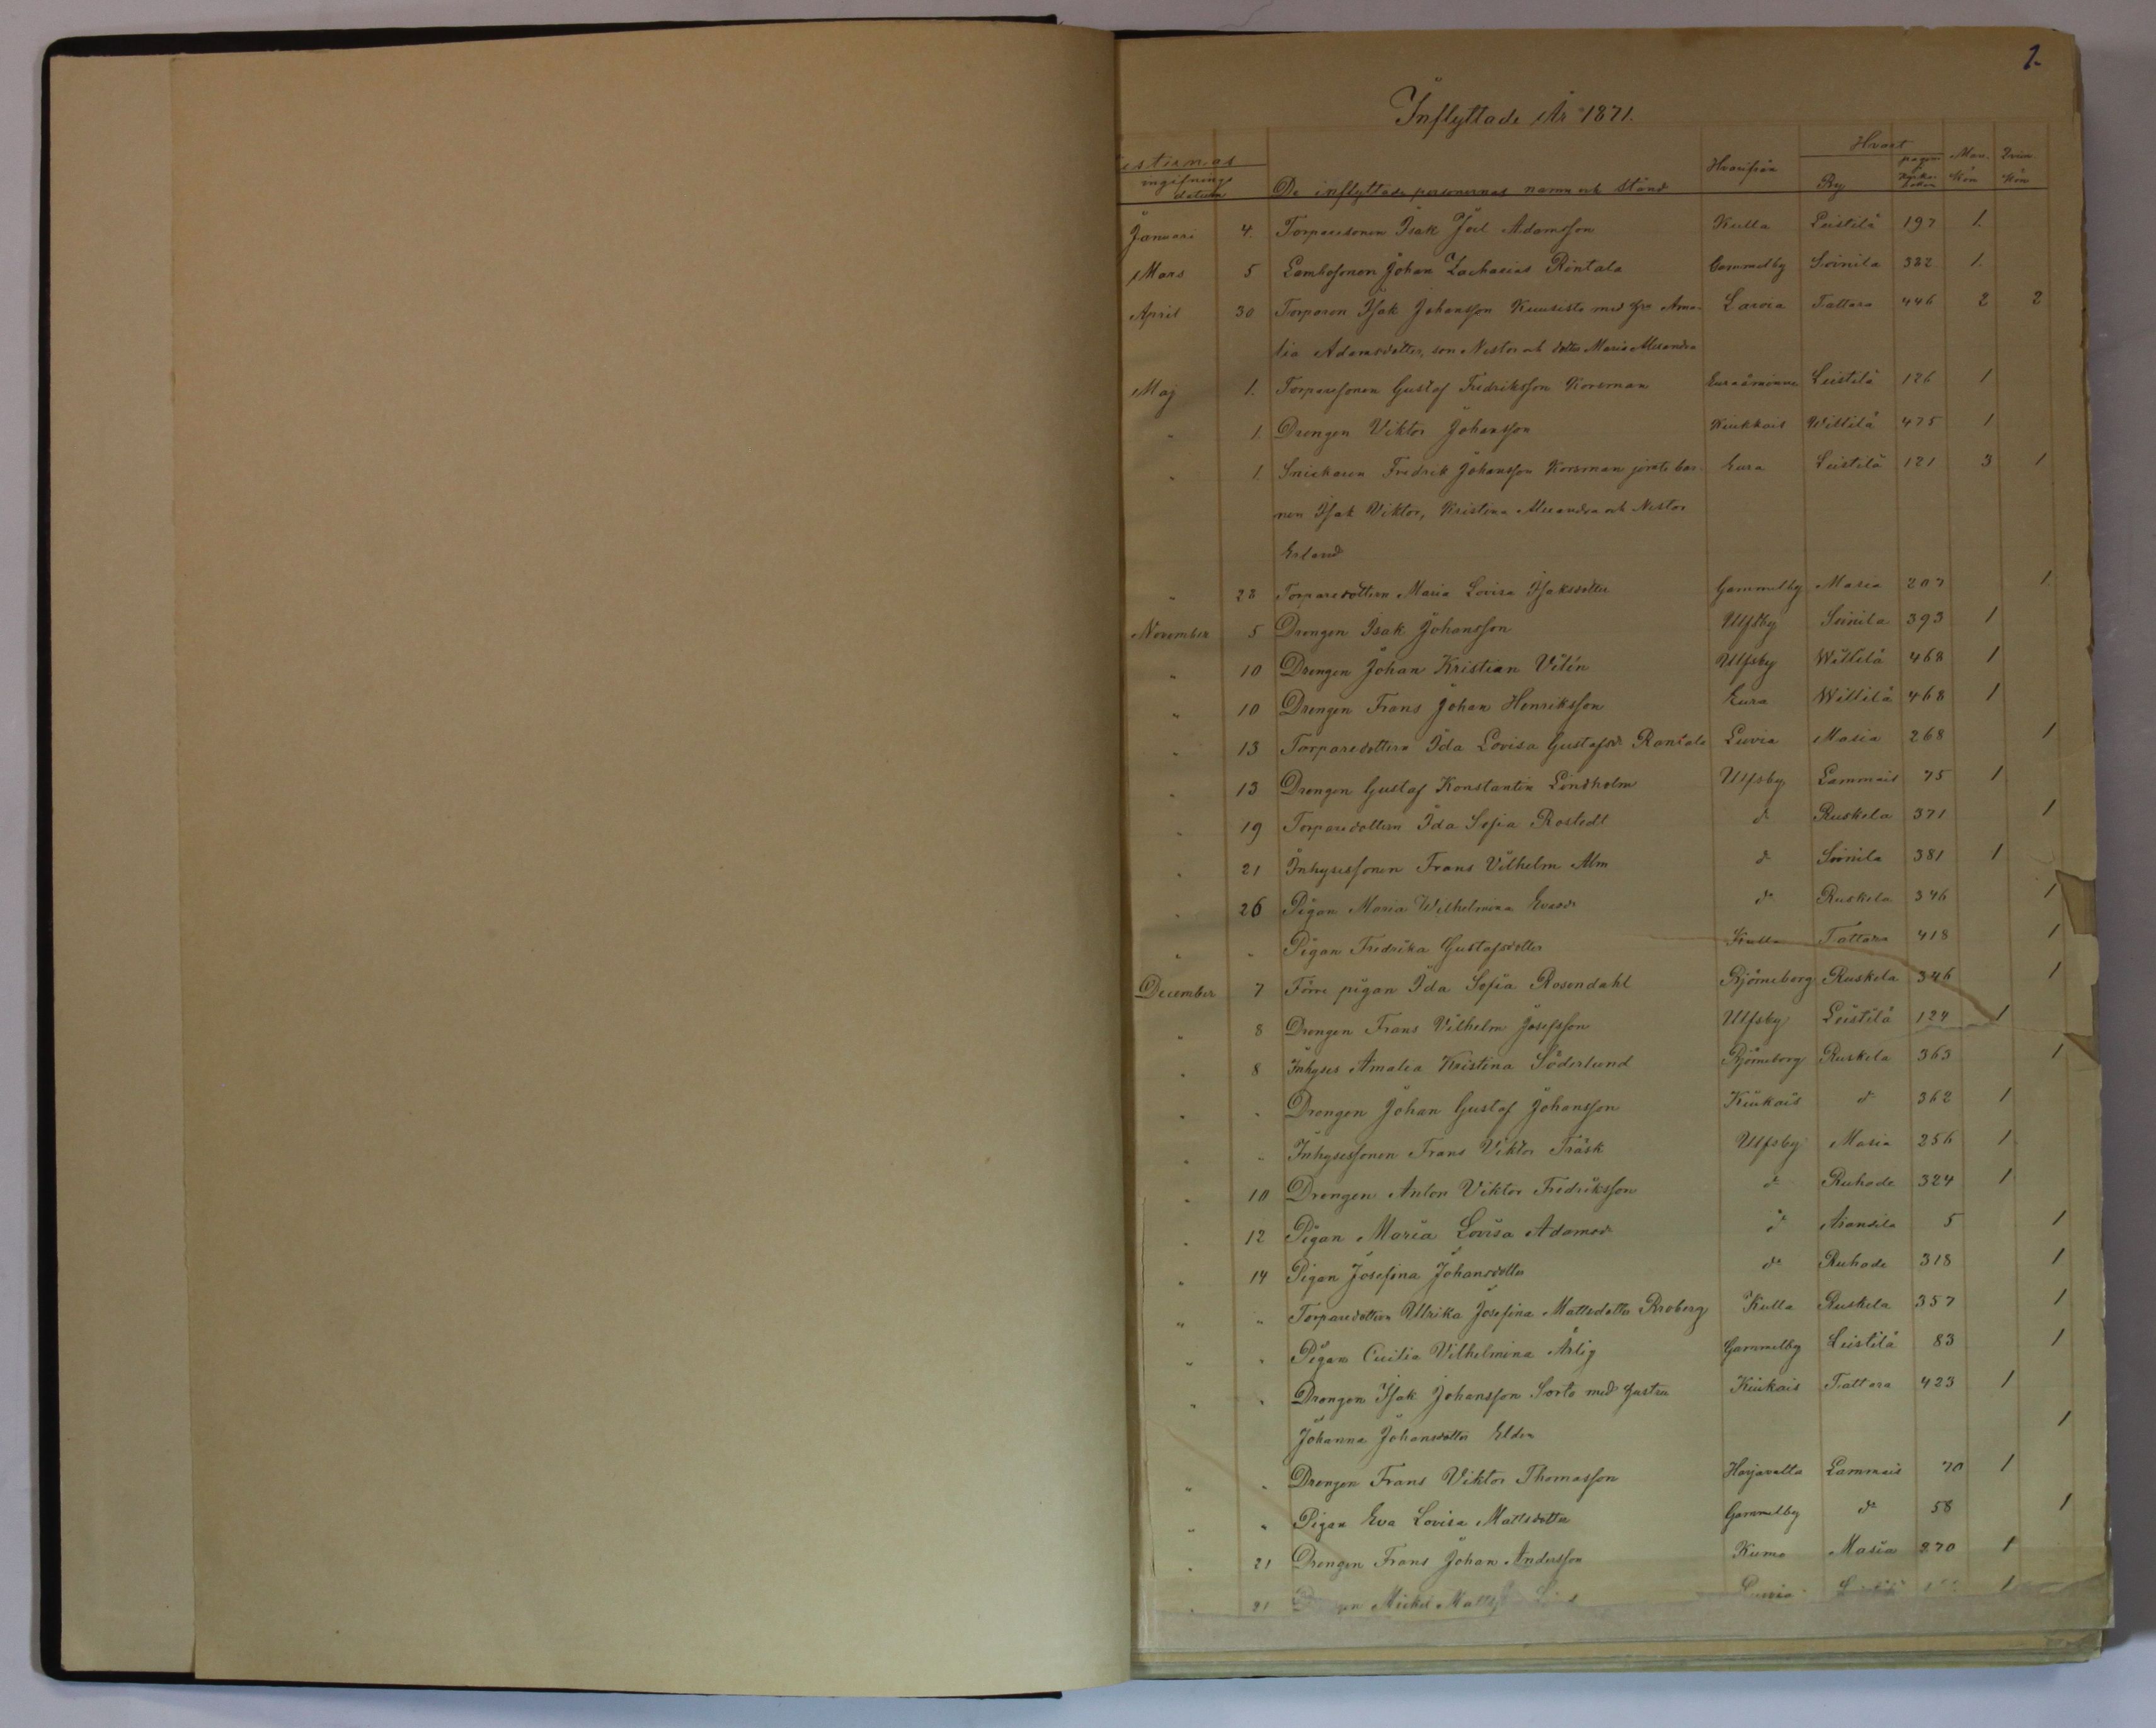 1.
Inflyttade År 1871.
esternas ingifnings datum De inflyttade personernas namn och stånd Hvarifrån Hvart By pagin Man. Kön Qvin. Kön
Januari 4. Torparesonen Isak Joel Adamsson Kulla Leistilä 197 1.
Mars 5 Johan Zacharias Rintala Gammelby Soinila 382 1.
April 30 Torparen Isak Johansson Kuusisto med hu Ama- Lavia Tattara 446 2 2
lia Adamsdotter, son Nestor och dotter Maria Alexandra
Maj 1. Torparesonen Gustaf Fredriksson Korsman Euraåminne Leistilä 126 1
" 1. Drengen Viktor Johansson Kiukkais Wittilä 475 1
" 1. Snickaren Fredrik Johansson Korsman jemte bar- Eura Leistilä 121 3 1
nen Isak Viktor, Kristina Alexandra och Nestor
Erland
" 28 Torparedottern Maria Lovisa Isaksdotter Gammelby Masia 207 1
November 5 Drengen Isak Johansson Ulfsby Soinila 393 1
" 10 Drengen Johan Kristian Vilén Ulfsby Wittilä 468 1
" 10 Drengen Frans Johan Henriksson Eura Wittilä 468 1
" 13 Torparedottern Ida Lovisa Gustafsdr Rantala Luvia Masia 268 1
" 13 Drengen Gustaf Konstantin Lindholm Ulfsby Lammais 75 1
" 19 Torparedottern Ida Sofia Rostedt do Ruskela 371 1
" 21 Inhysessonen Frans Vilhelm Alm do Soinila 381 1
" 26 Pigan Maria Wilhelmina Evasdr do Ruskela 346 1
" " Pigan Fredrika Gustafsdotter Kulla Tattara 418 1
December 7 Förre pigan Ida Sofia Rosendahl Björneborg Ruskela 346 1
" 8 Drengen Frans Vilhelm Josefsson Ulfsby Leistilä 124 1
" 8 Inhyses Amalia Kristina Söderlund Björneborg Ruskela 363 1
" " Drengen Johan Gustaf Johansson Kiukais do 362 1
" " Inhysessonen Frans Viktor Träsk Ulfsby Masia 256 1
" 10 Drengen Anton Viktor Fredriksson do Ruhade 324 1
" 12 Pigan Maria Lovisa Adamsdr do Arantila 5 1
" 14 Pigan Josefina Johansdotter do Ruhade 318 1
" " Torparedottern Ulrika Josefina Mattsdotter Broberg Kulla Ruskela 357 1
" " Pigan Cecilia Vilhelmina Ärlig Gammelby Leistilä 83 1
" " Drengen Isak Johansson Sorto med hustru Kiukais Tattara 423 1
Johanna Johansdotter Elden 1
" " Drengen Frans Viktor Thomasson Harjavalta Lammais 70 1
" " Pigan Eva Lovisa Mattsdotter Gammelby do 58 1
" 21 Drengen Frans Johan Andersson Kumo Masia 270 1
" 21 Mickel 1